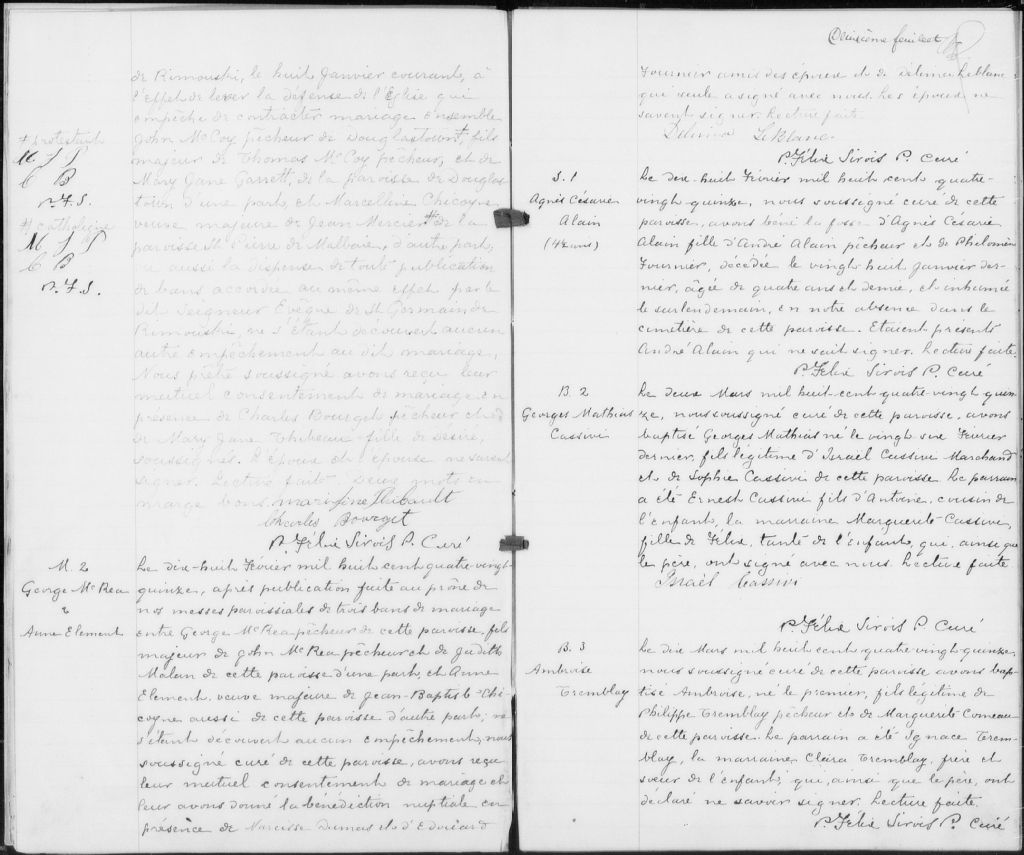 de Rimouski, le huit Janvier courant, à
l'effet de lever la défense de l'Eglise qui
empêche de contracter mariage ensemble
John McCoy pêcheur de Douglastown #, fils
majeur de Thomas McCoy pêcheur, et de
Mary Jane Garrett, de la paroisse de Douglas
town d'une part, et Marcelline Chicoyne
veuve majeure de Jean Mercier # de la
paroisse St Pierre de Malbaie, d'autre part;
vu aussi la dispense de toute publication
de bans accordée au même effet par le
dit Seigneur Evêque de St Germain de
Rimouski, ne s'étant découvert aucun
autre empêchement au dit mariage,
Nous prêtre soussigné avons reçu leur
mutuel consentement de mariage en
présence de Charles Bourget pêcheur et
de Mary Jane Thibeau fille de désiré,
soussignés. L'époux et l'épouse ne savent
signer. Lecture faite. Deux mots en
marge bons. mari jine Thibault
Charles Bourget
P. Félix Sirois P. Curé
# protestant
P.F.S.
# catholique
P.F.S.
M. 2
George McRea
&
Anne Element
Le dix-huit Février mil huit cent quatre-vingt-
quinze, après publication faite au prône de
nos messes paroissiales de trois bans de mariage
entre George McRea pêcheur de cette paroisse, fils
majeur de John McRea pêcheur et de Judith
Malen de cette paroisse d'une part, et Anne
Element, veuve majeure de Jean-Baptiste Chi-
coyne aussi de cette paroisse d'autre part; ne
s'étant découvert aucun empêchement, nous
soussigné curé de cette paroisse, avons reçu
leur mutuel consentement de mariage et
leur avons donné la bénédiction nuptiale en
présence de Narcisse Dumas et d'Edouard
Deuxième feuillet
Fournier amis des époux et de Delima Leblanc
qui seule a signé avec nous. Les époux ne
savent signer. Lecture faite.
Delima Leblanc
P. Félix Sirois P. Curé
S. 1
Agnès Césarie
Alain
(4½ ans)
Le dix-huit Février mil huit cent quatre-
vingt quinze, nous soussigné curé de cette
paroisse, avons béni la fosse d'Agnès Césarie
Alain fille d'André Alain pêcheur et de Philomène
Fournier, décédée le vingt huit Janvier der-
nier, âgée de quatre ans et demie, et inhumée
le surlendemain, en notre absence dans le
cimetière de cette paroisse. Etaient présents
André Alain qui ne sait signer. Lecture faite.
P. Félix Sirois P. Curé
B. 2
Georges Mathias
Cassivi
Le deux Mars mil huit-cent-quatre-vingt quin-
ze, nous soussigné curé de cette paroisse, avons
baptisé Georges Mathias né le vingt six Février
dernier, fils légitime d'Israël Cassivi Marchand
et de Sophie Cassivi de cette paroisse. Le parrain
a été Ernest Cassivi fils d'Antoine, cousin de
l'enfant, la marraine Marguerite Cassivi,
fille de Félix, tante de l'enfant, qui, ainsi que
le père, ont signé avec nous. Lecture faite
Israël Cassivi
P. Félix Sirois P. Curé
B. 3
Ambroise
Tremblay
Le dix Mars mil huit cent quatre-vingt quinze,
nous soussigné curé de cette paroisse avons bap-
tisé Ambroise, né le premier, fils légitime de
Philippe Tremblay pêcheur et de Marguerite Comeau
de cette paroisse. Le parrain a été Ignace Trem-
blay, la marraine Clara Tremblay, frère et
sœur de l'enfant; qui, ainsi que le père, ont
déclaré ne savoir signer. Lecture faite.
P. Félix Sirois P. Curé